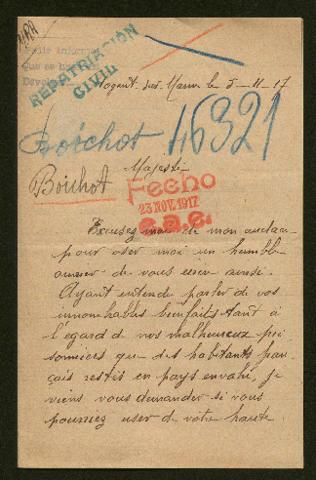 REPATRIACIÓN
CIVIL
Nogent sur Marne le 5-11-17
Boichot 46321
Majesté
Boichot
Fecho
23 NOV. 1917
Excusez moi de mon audace
pour oser moi un humble
ouvrier de vous écrire ainsi.
Ayant entendu parler de vos
innombrables bienfaits tant à
l'égard de nos malheureux pri
sonniers que des habitants fran
çais restés en pays envahi, je
viens vous demander si vous
pourriez user de votre haute